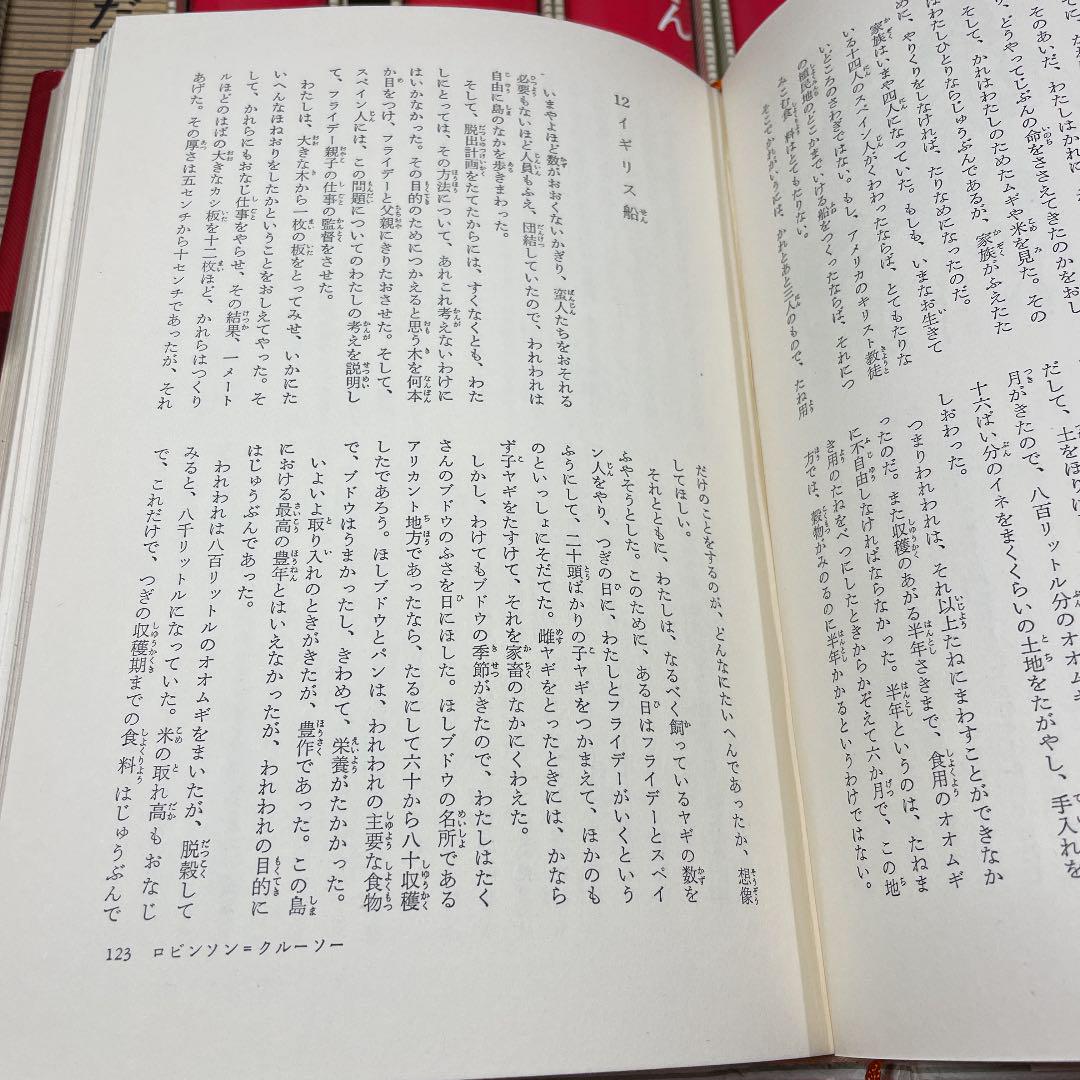 だ
ん
そして、かれはわたしに
そのあいだ、
、どうやってじぶんの命をささえてきたのかをおし
そして、かれはわたしのためたムギや米を見た。その
はわたしひとりならじゅうぶんであるが、家族がふえたた
めに、やりくりをしなければ、たりなめになったのだ。
家族はいまや四人になっていた。もしも、いまなお生きて
いる十四人のスペイン人がくわわったならば、とてもたりな
いどころのさわぎではない。もし、アメリカのキリスト教徒
の植民地のどこかまでいける船をつくったならば、それにつ
みこむ食料はとてもたりない。
そこでかれがいうには、かれとあと三人のもので、たね用
だして、土をほりは
月がきたので、八百リットル分のオオムギ
十六ぱい分のイネをまくくらいの土地をたがやし、手入れを
しおわった。
つまりわれわれは、それ以上たねにまわすことができなか
ったのだ。また収穫のあがる半年さきまで、食用のオオムギ
に不自由しなければならなかった。半年というのは、たねま
き用のたねをべつにしたときからかぞえて六か月で、この地
方では、穀物がみのるのに半年かかるというわけではない。
12 イギリス船
いまやよほど数がおおくないかぎり、蛮人たちをおそれる
必要もないほど人員もふえ、団結していたので、われわれは
自由に島のなかを歩きまわった。
そして、脱出計画をたてたからには、すくなくとも、わた
しにとっては、その方法について、あれこれ考えないわけに
はいかなかった。その目的のためにつかえると思う木を何本
か目をつけ、フライデーと父親にきりたおさせた。そして、
スペイン人には、この問題についてのわたしの考えを説明し
て、フライデー親子の仕事の監督をさせた。
わたしは、大きな木から一枚の板をとってみせ、いかにた
いへんなほねおりをしたかということをおしえてやった。そ
して、かれらにもおなじ仕事をやらせ、その結果、一メート
ルほどのはばの大きなカシ板を十二枚ほど、かれらはつくり
あげた。その厚さは五センチから十センチであったが、それ
だけのことをするのが、どんなにたいへんであったか、想像
してほしい。
それとともに、わたしは、なるべく飼っているヤギの数を
ふやそうとした。このために、ある日はフライデーとスペイ
ン人をやり、つぎの日に、わたしとフライデーがいくという
ふうにして、二十頭ばかりの子ヤギをつかまえて、ほかのも
のといっしょにそだてた。雌ヤギをとったときには、かなら
ず子ヤギをたすけて、それを家畜のなかにくわえた。
しかし、わけてもブドウの季節がきたので、わたしはたく
さんのブドウのふさを日にほした。ほしブドウの名所である
アリカント地方であったなら、たるにして六十から八十収穫
したであろう。ほしブドウとパンは、われわれの主要な食物
で、ブドウはうまかったし、きわめて、栄養がたかかった。
いよいよ取り入れのときがきたが、豊作であった。この島
における最高の豊年とはいえなかったが、われわれの目的に
はじゅうぶんであった。
われわれは八百リットルのオオムギをまいたが、脱穀して
みると、八千リットルになっていた。米の取れ高もおなじ
で、これだけで、つぎの収穫期までの食料はじゅうぶんで
123 ロビンソン=クルーソー